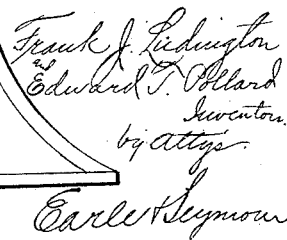 Frank J. Ludington
and
Edward T. Pollard
Inventors.
by attys.
Earle & Seymour